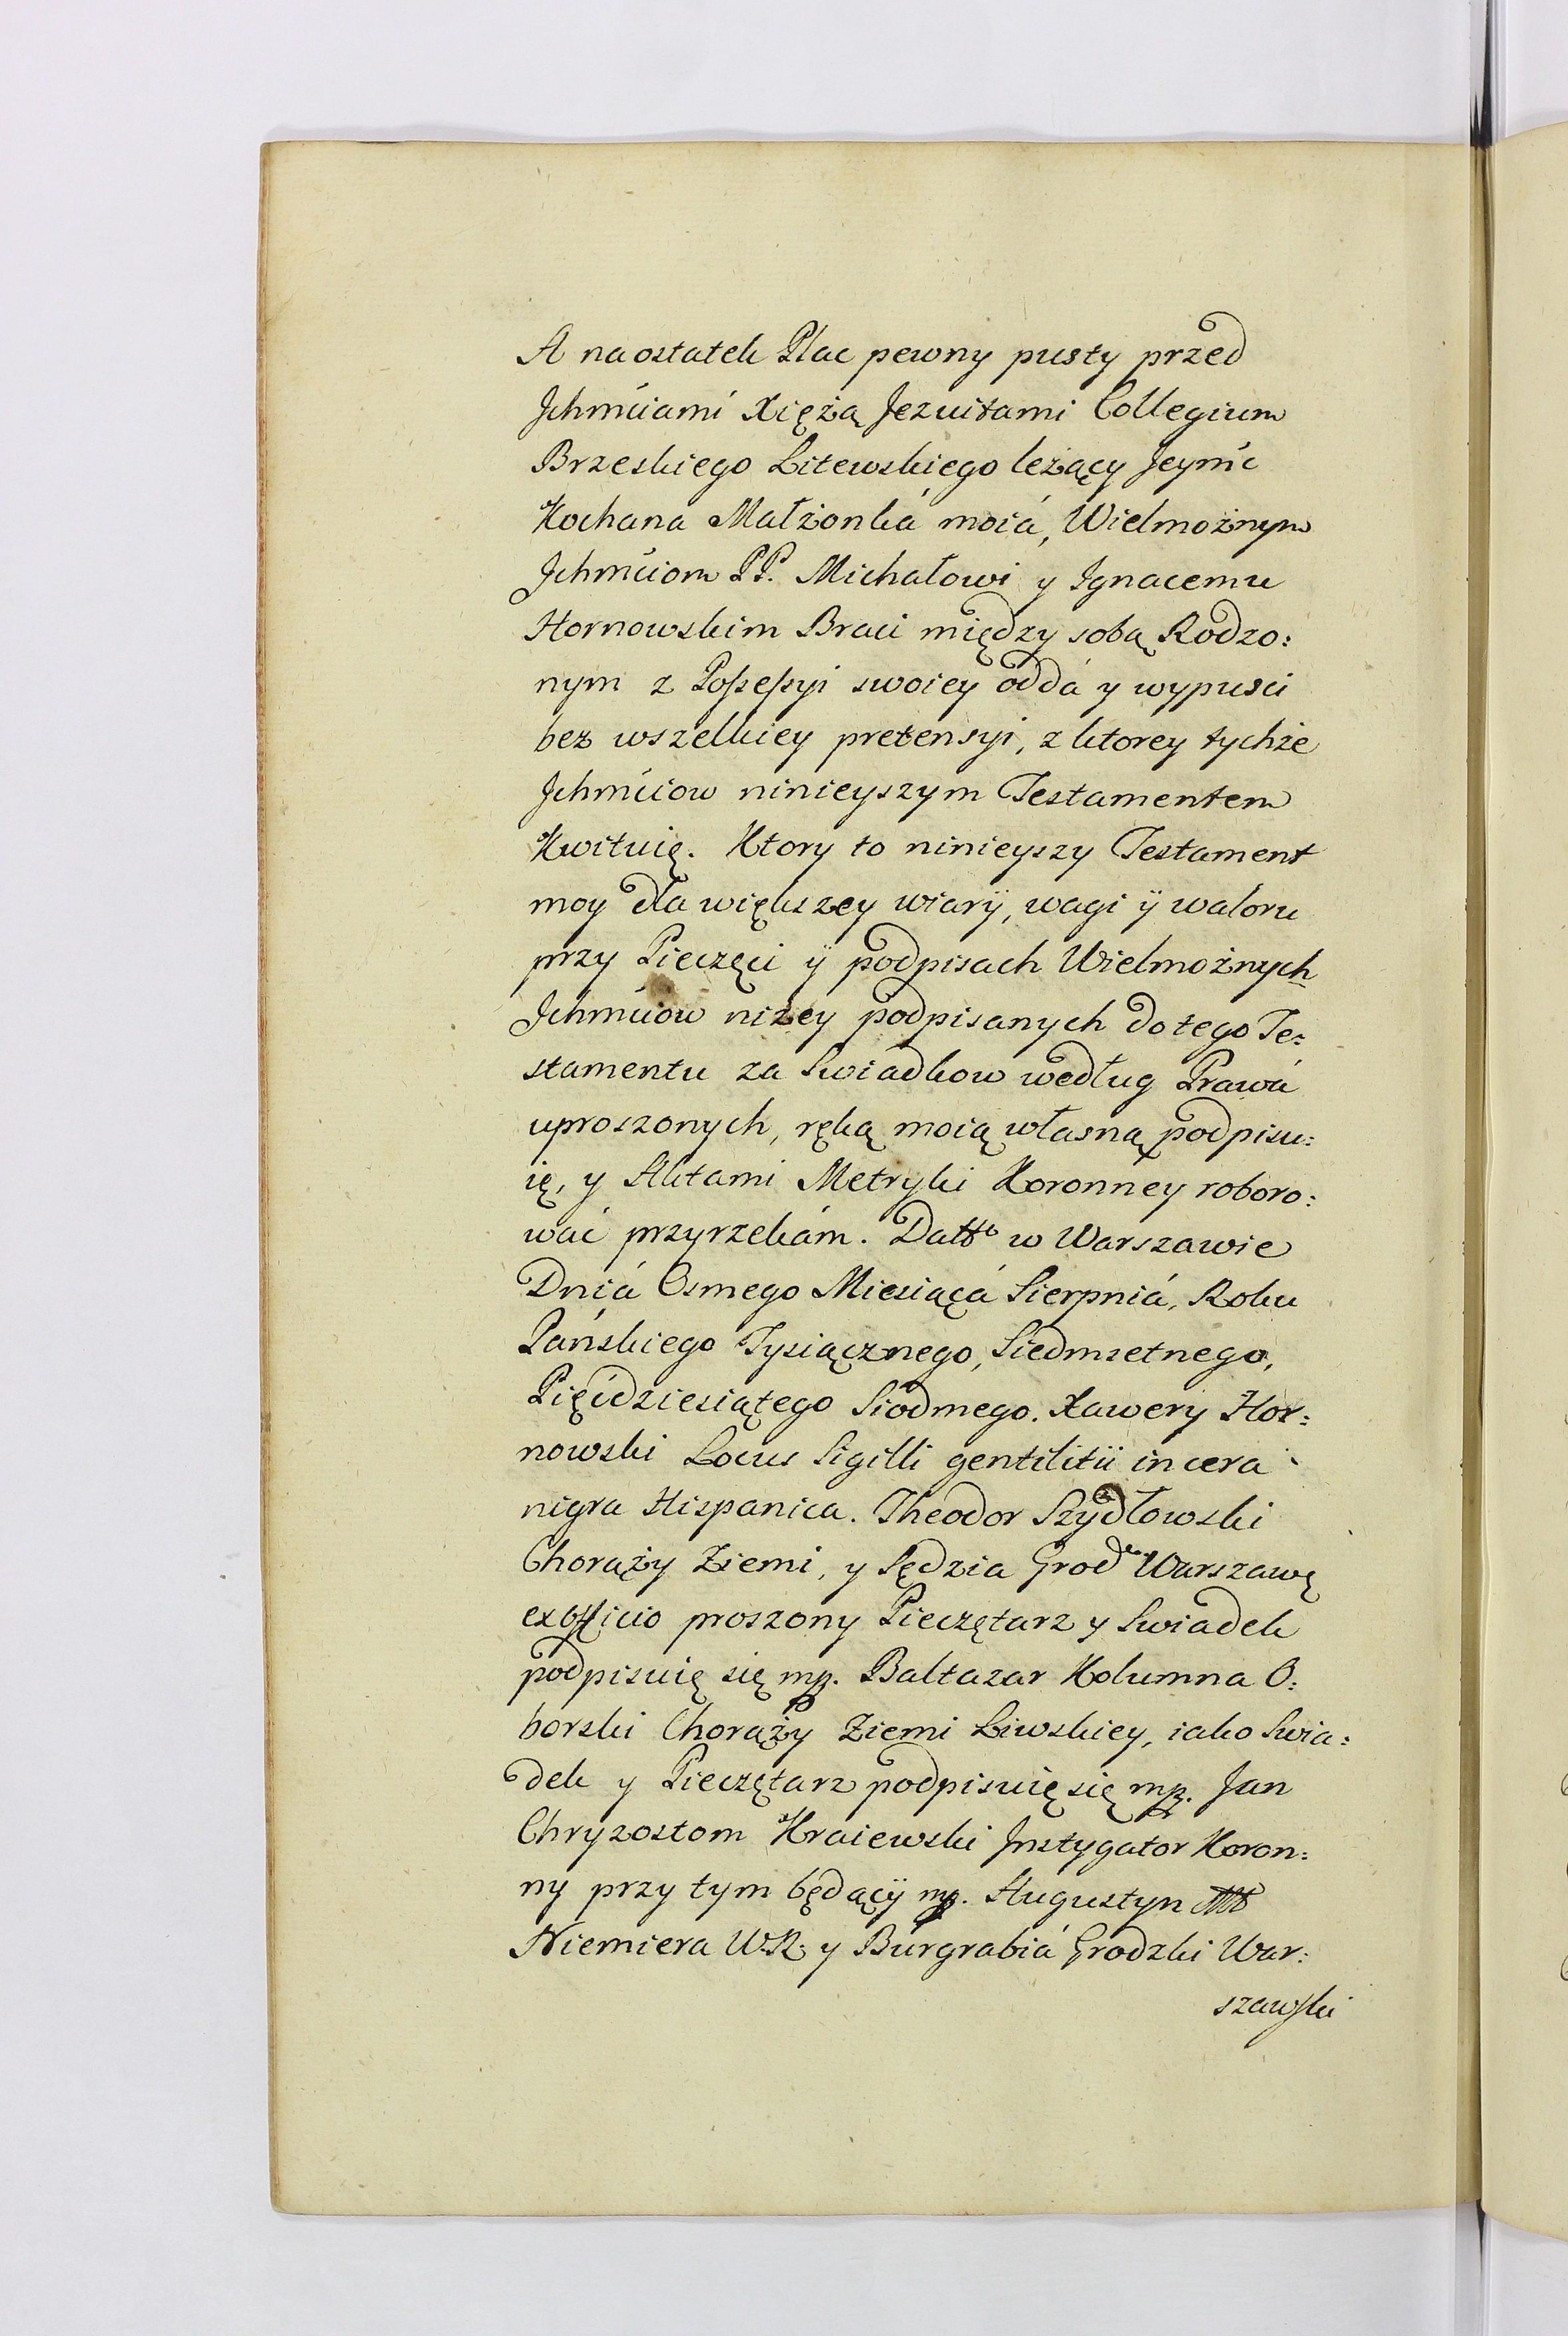 A naostatek Plac pewny pusty przed
Jchmciami Xiężą Jezuitami Collegium
Brzeskiego Litewskiego leżący Jeymć
Kochana Małżonká moiá, Wielmożnym
Jchmciom PP. Michałowi y Ignacemu
Hornowskim Braci między sobą Rodzo:
nym z Possessyi swoiey oddá y wypusci
bez wszelkiey pretensyi, z ktorey tychże
Jchmciow ninieyszym Testamentem
Kwituię. Ktory to ninieyszy Testament
moy dla większey wiarÿ, wagi ÿ waloru
przy Pieczęci ÿ podpisach Wielmożnych
Jchmciow niżey podpisanych do tego Te:
stamentu za Swiadkow według Prawá
uproszonych, ręką moią własną podpisu:
ię, y Aktami Metryki Koronney roboro:
wać przyrzekám. Datt w Warszawie
Dniá Osmego Miesiącá Sierpniá, Roku
Pańskiego Tysiącznego, Siedmsetnego,
Pięćdziesiątego Siodmego. Xawery Hor:
nowski Locus Sigilli gentilitii in cera
nigra Hispanica. Theodor Szydłowski
Chorąży Ziemi, y Sędzia Grod Warszawę
exofficio proszony Pieczętarz y Swiadek
podpisuię się mp. Baltazar Kolumna O:
borski Chorąży Ziemi Liwskiey, iako Swia:
dek y Pieczętarz podpisuię się mp. Jan
Chryzostom Kraiewski Jnstygator Koron:
ny przy tym będącÿ mp. Augustyn
Niemiera W.R. y Burgrabiá Grodzki War:
szawski